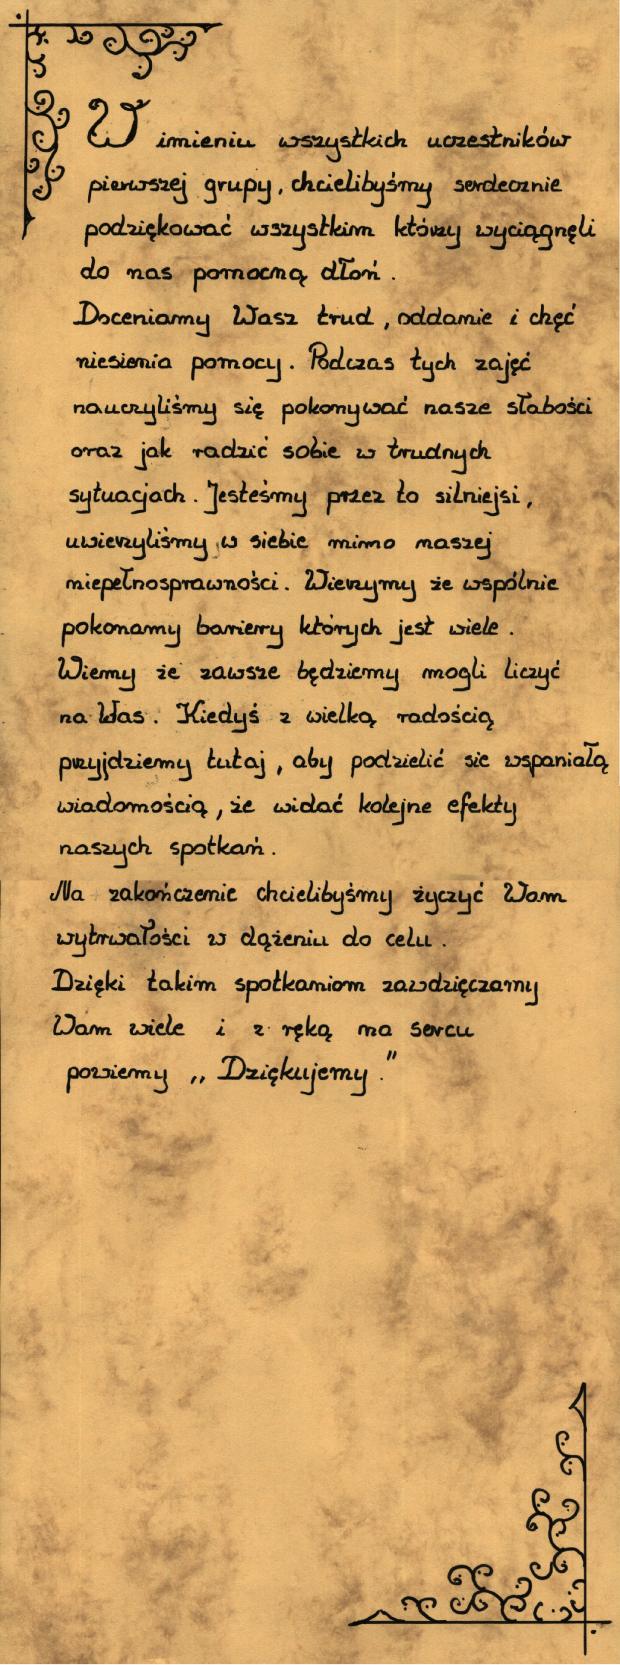 W imieniu wszystkich uczestników
pierwszej grupy, chcielibyśmy serdecznie
podziękować wszystkim którzy wyciągnęli
do nas pomocną dłoń.
Doceniamy Wasz trud, oddanie i chęć
niesienia pomocy. Podczas tych zajęć
nauczyliśmy się pokonywać nasze słabości
oraz jak radzić sobie w trudnych
sytuacjach. Jesteśmy przez to silniejsi,
uwierzyliśmy w siebie mimo naszej
niepełnosprawności. Wierzymy że wspólnie
pokonamy bariery których jest wiele.
Wiemy że zawsze będziemy mogli liczyć
na Was. Kiedyś z wielką radością
przyjdziemy tutaj, aby podzielić sie wspaniałą
wiadomością, że widać kolejne efekty
naszych spotkań.
Na zakończenie chcielibyśmy życzyć Wam
wytrwałości w dążeniu do celu.
Dzięki takim spotkaniom zawdzięczamy
Wam wiele i z ręką na sercu
powiemy „Dziękujemy."